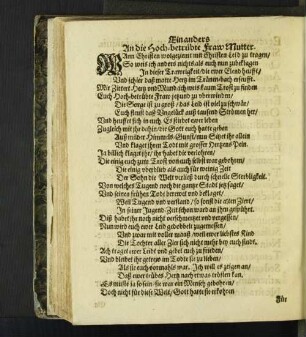 Ein anders
An die Hoch-betrübte Fraw Mutter.
WAnn Christen wolgeziemt mit Christen Leid zu tragen/
So weis ich anders nichts als euch nun zubeklagen
In dieser Trawrigkeit/ die ewer Hertz
Und schier daß matte Hertz im Thränenbach ersäufft.
Mit Zittert Hertz und Mund/ ich weis kaum Trost zu finden
Euch Hoch-betrübte Fraw jetzund zu
Die Sorge ist zu groß/ das Leid ist viel zu schwär/
Euch kömbt das Unglück auß tausend Stürmen her/
Und heuffet sich in euch. Es stirbet ewer leben
Zugleich mit ihr dahin/ die Gott euch hatte geben
Auß reicher Himmels-Gunst/ nun Sie ihr allein
Und klaget ihren Todt mit grosser Hertzens Pein.
In billich klaget ihr/ ihr habet die verlohren/
Die einig euch zum Trost von euch selbst war gebohren/
Die einig überbleib als euch für wenig Zeit
Der Sohn die Welt verließ durch schnelle Sterbligkeit.
Von welches Tugend noch die gantze Stadt jetz saget/
Und seinen frühen Todt beweint und beklaget/
Weil Tugend und verstand/ so sonst die alten Ziert/
In seiner Jugend-Zeit schon ward an ihm gespührt.
Diß habt ihr noch nicht verschmertzet und vergessen/
Nun wird euch ewer Leid gedobbelt zugemessen/
Und zwar mit voller maaß/ weil ewer liebstes Kind
Die Tochter aller Zier sich nicht mehr bey euch findt.
Ach traget ewer Leid und gebet euch zu frieden/
Und bleibet ihr getrew im Tode sie zu lieben/
Als sie euch vormahls war. Ich will es zeigen an/
Daß ewer trübes Hertz noch etwas trösten kan.
Es muste ja so sein: sie war ein Mensch gebohren/
Doch nicht für diese Welt/ Gott hatte sie erkohren
Für